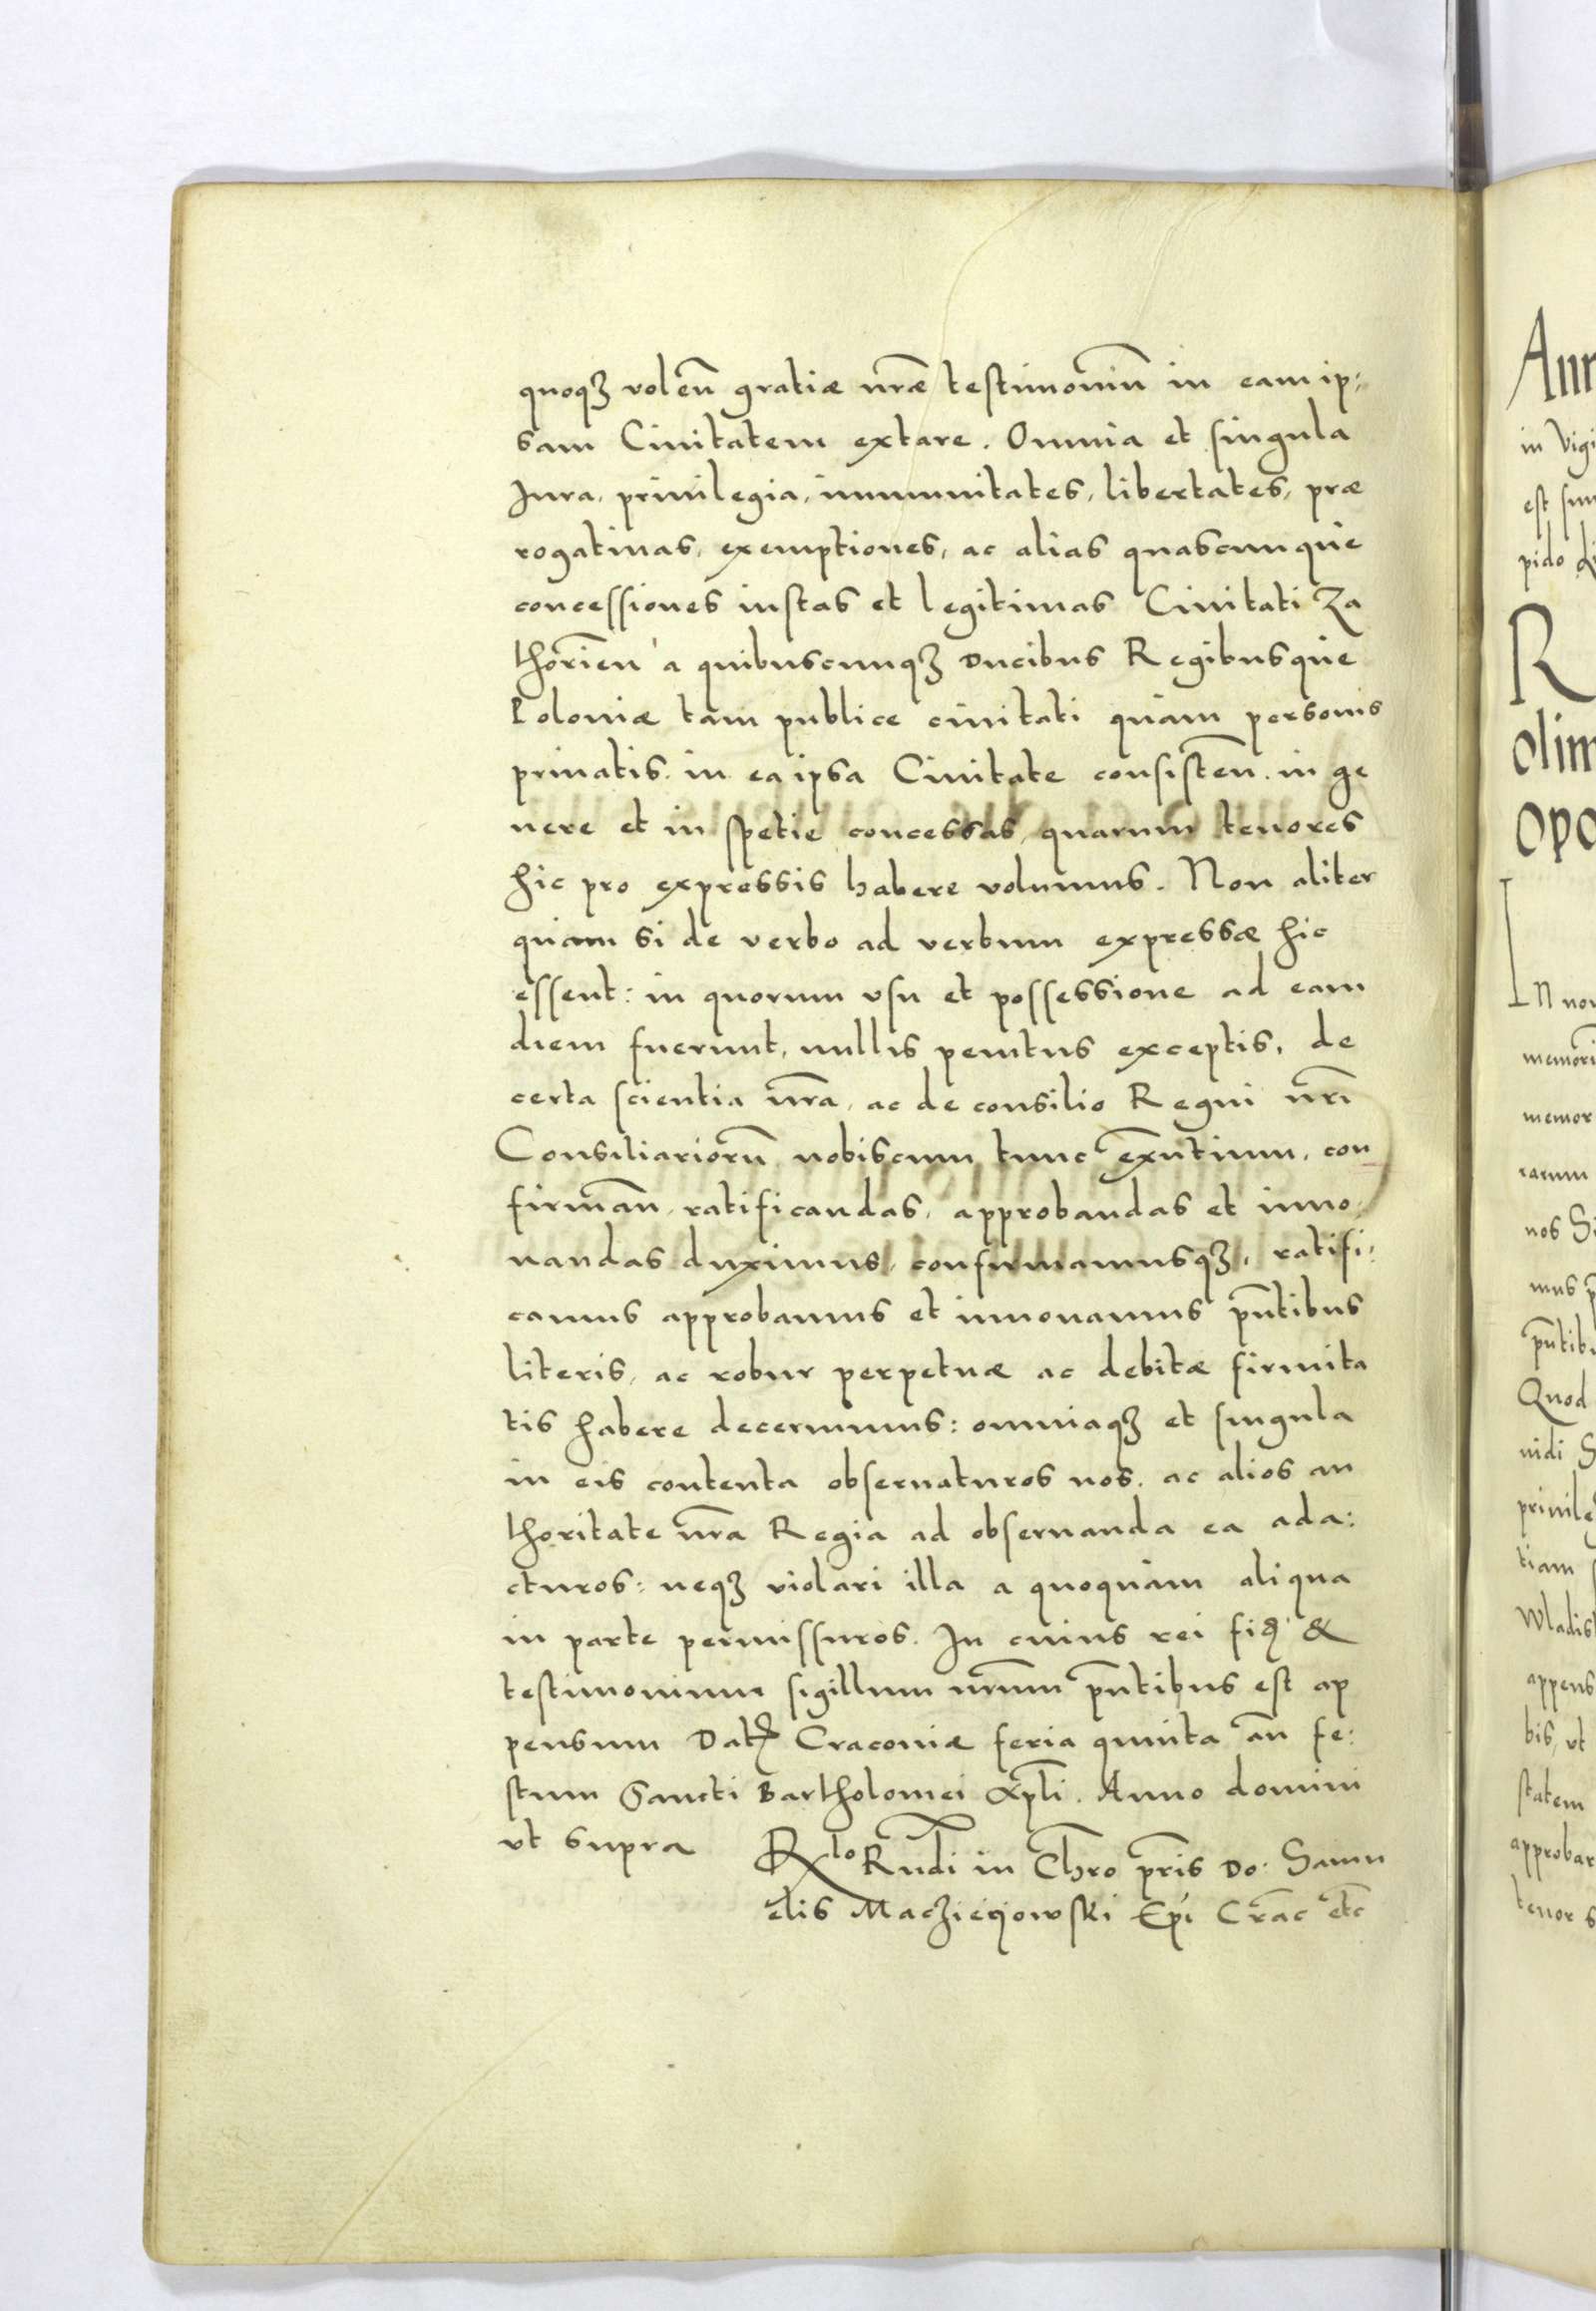 quoqꝫ volen̄ gratiæ nr̄æ testimoniū in eam ip:
sam Ciuitatem extare. Omnia et singula
Jura, priuilegia, immunitates, libertates, præ
rogatiuas, exemptiones, ac alias quascunque
concessiones iustas et legitimas Ciuitati Za
thorien̄ a quibuscunqꝫ Ducibus Regibusque
Poloniæ tam publice ciuitati quam personis
priuatis. in ea ipsa Ciuitate consisten̄. in ge
nere et in spetie concessas, quarum tenores
hic pro expressis habere volumus. Non aliter
quam si de verbo ad verbum expressæ hic
essent: in quorum vsu et possessione ad eam
diem fuerunt, nullis penitus exceptis, de
certa scientia nr̄a, ac de consilio Regni nr̄i
Consiliariorū nobiscum tunc exn̄tium, con
firman̄, ratificandas, approbandas et inno:
uandas duximus, confirmamusqꝫ, ratifi:
camus approbamus et innouamus pn̄tibus
literis, ac robur perpetuæ ac debitæ firmita
tis habere decernimus: omniaqꝫ et singula
in eis contenta obseruaturos nos. ac alios au
thoritate nr̄a Regia ad obseruanda ea ada:
cturos: neqꝫ violari illa a quoquam aliqua
in parte permissuros. In cuius rei fiđ &
testimonium sigillum nr̄um pn̄tibus est ap
pensum Datꝭ Cracouiæ feria quinta an̄ fe:
stum Sancti Bartholomei Apl̄i. Anno domini
vt supra
Rlo Rn̄di in Chr̄o pr̄is Do: Samu
elis Macziegowski Ep̄i Crac̄ etc̄
Ann
in Vigi
est sum
pido
R
olim
opo
IN nom
memori
memor
rarum
nos Si
mus p
pn̄tibu
Quod
nidi S
priuile
tiam
Wladis
appens
bis, vt
statem
approbar
tenor s